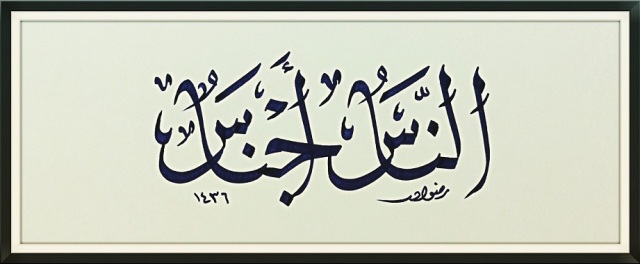 الناس أجناس
رضوان
١٤٣٦